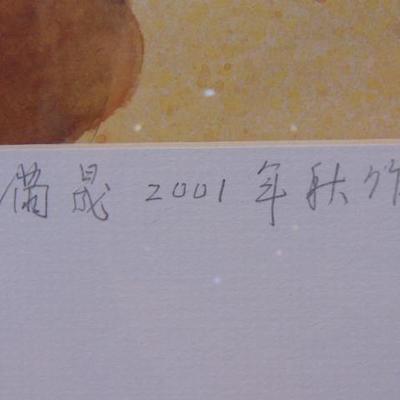 晟 2001 年秋作